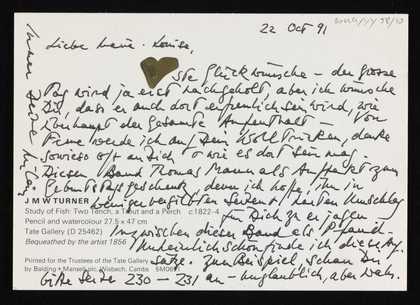 22 Oct 91
Liebe Marie-Louise,
ste Glückwünsche – der grosse
Tag wird ja erst nachgeholt, aber ich wünsche
Dir, dass er auch dort erfreulich sein wird, wie
überhaupt der gesamte Aufenthalt – Von
Ferne werde ich auf Dein Wohl trinken, denke
sowieso oft an Dich & wie es dort sein mag.
Diesen Band Thomas Mann als Auftakt zum
Geburtstagsgeschenk, denn ich hoffe, ihn in
weniger vergilbten Seiten & harten Umschlag
für Dich zu
Inzwischen dieser Band als Pfand –
Unheimlich schön finde ich diese Auf-
sätze. Zum Beispiel, schau Du
bitte Seite 230 – 231 an – unglaublich, aber wahr.
J M W TURNER
Study of Fish: Two Tench, a Trout and a Perch c1822-4
Pencil and watercolour 27.5 x 47 cm
Tate Gallery (D 25462)
Bequeathed by the artist 1856
Printed for the Trustees of the Tate Gallery
by Balding + Mansell plc, Wisbech, Cambs